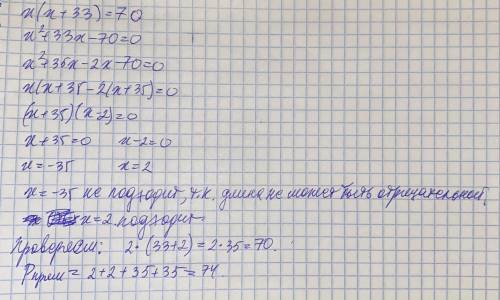 x(x+33)=70
x²+33x-70=0
x²+35x-2x-70=0
x(x+35-2(x+35)=0
(x+35)(x-2)=0
x+35=0 x-2=0
x=-35 x=2
x=-35 не подходит, т.к. длина не может быть отрицательной.
x=2 подходит
Проверяем: 2·(33+2)=2·35=70.
Pпрям=2+2+35+35=74.